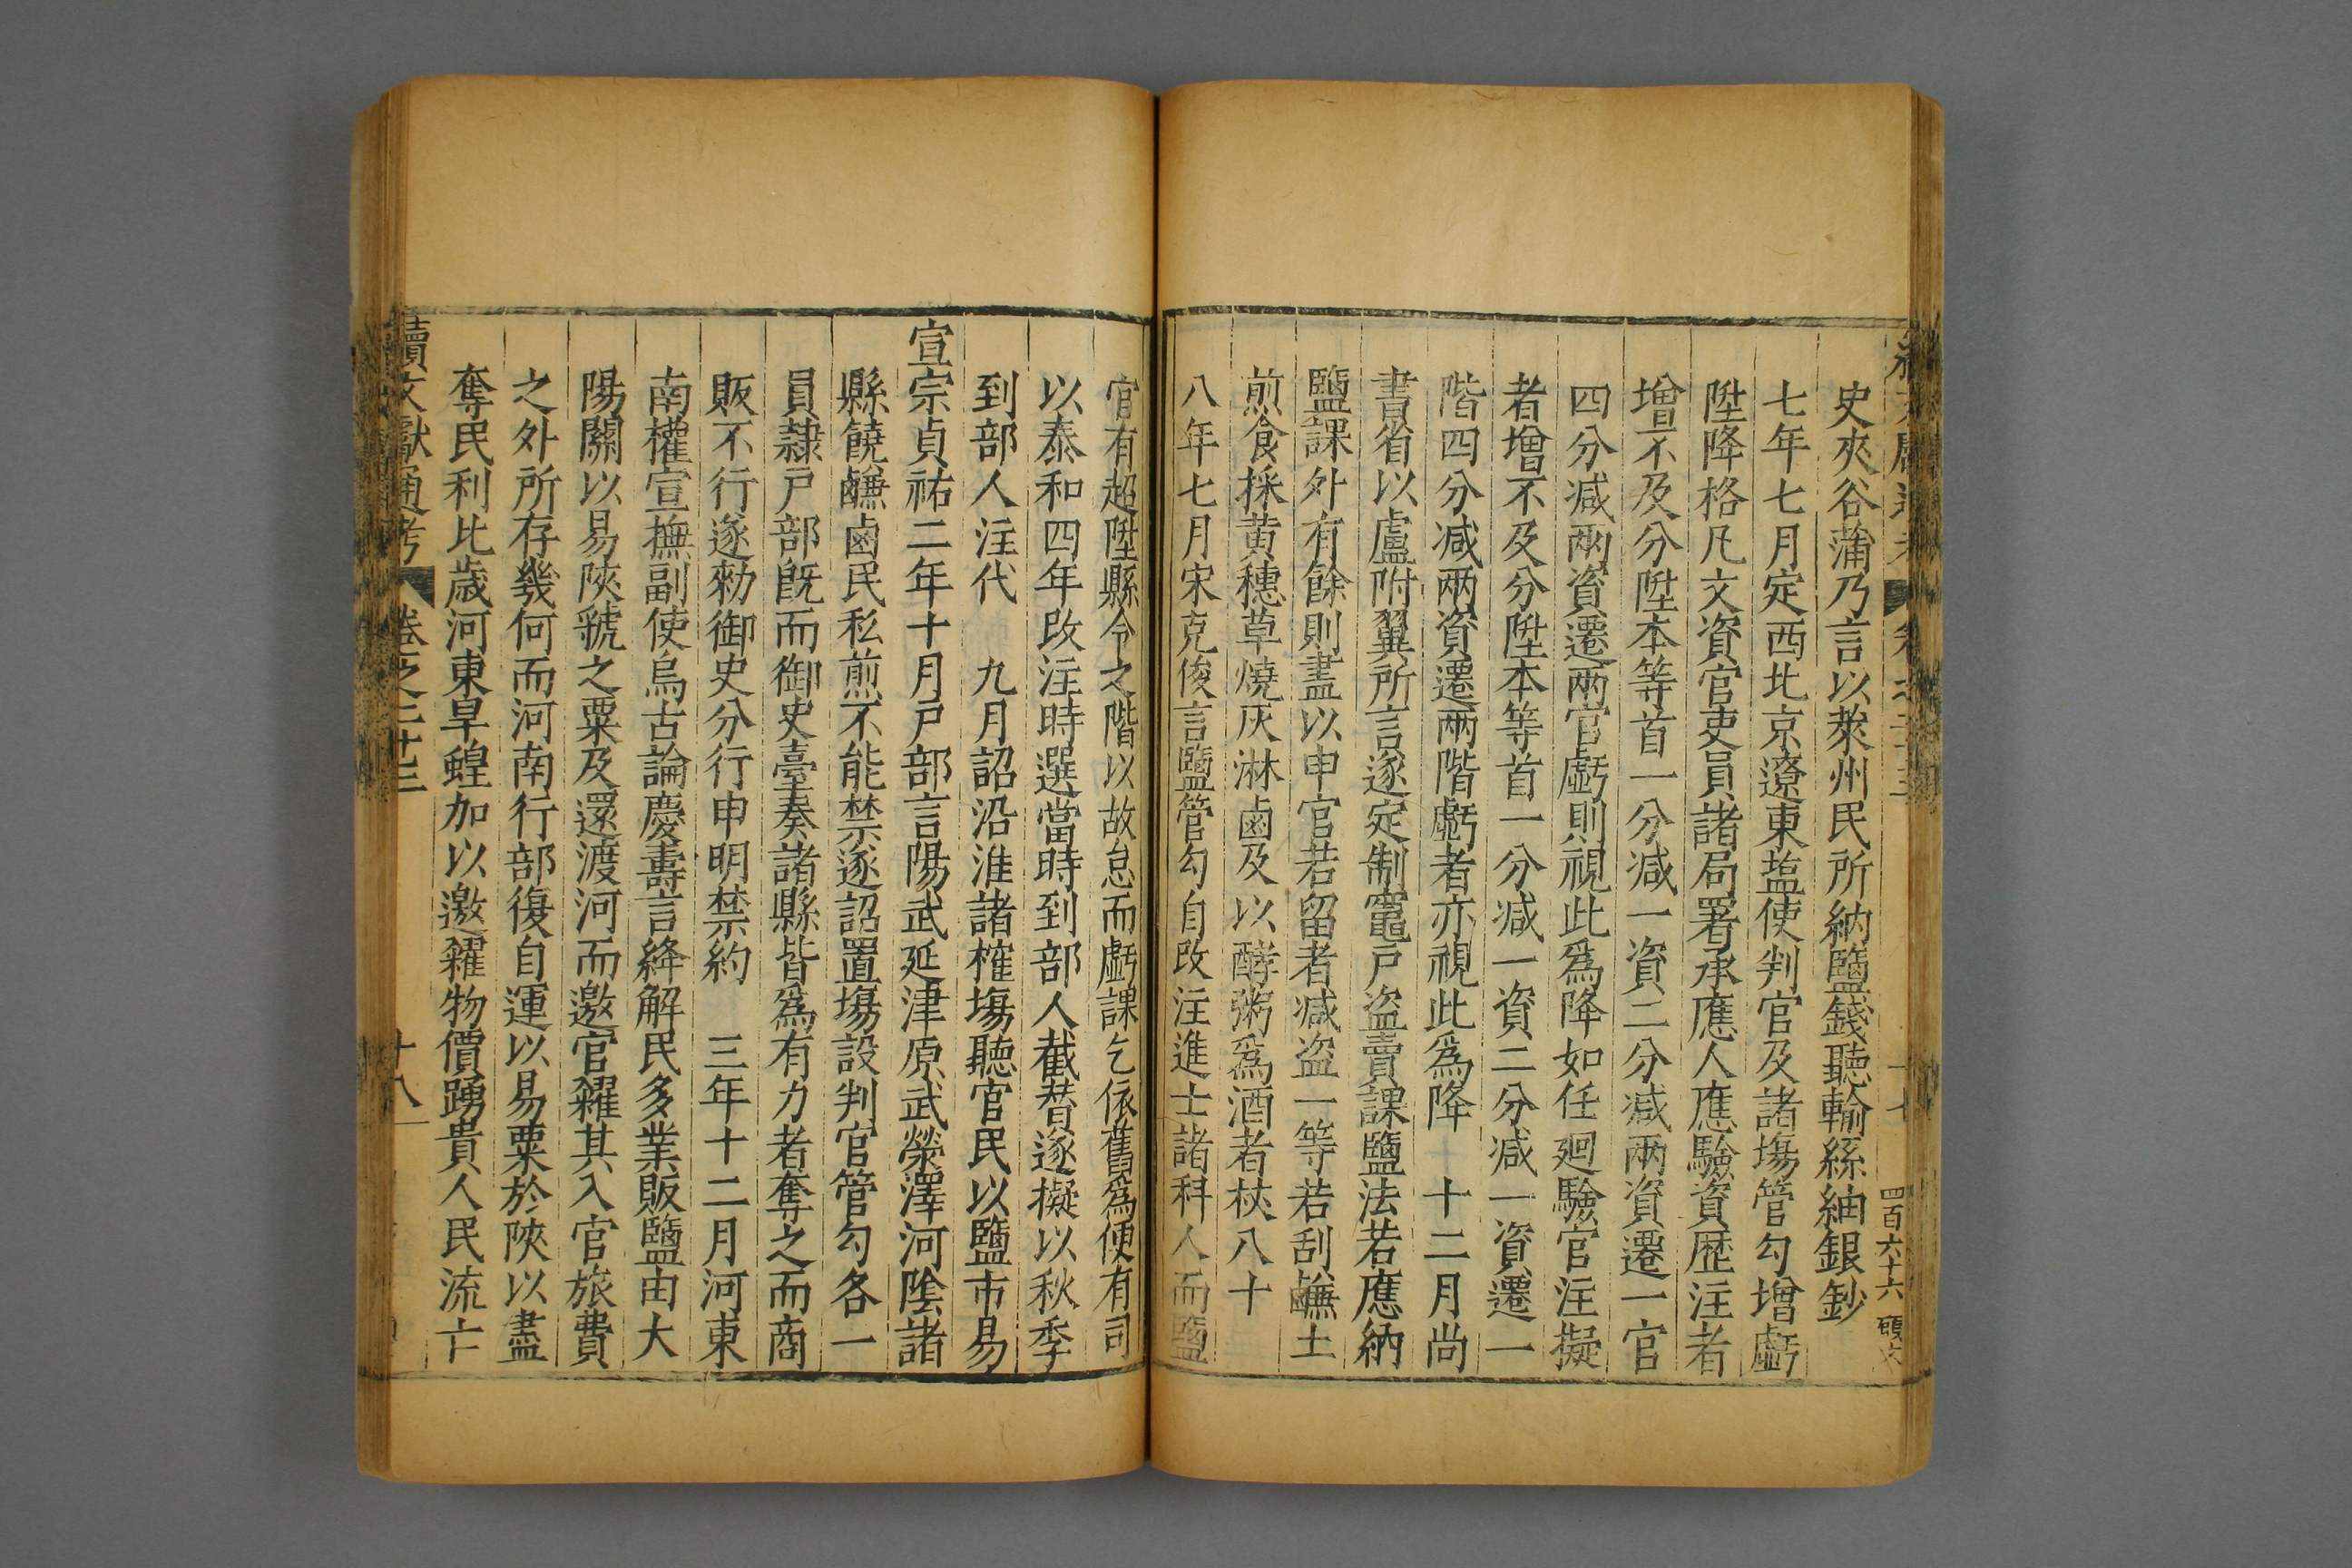 史夾谷蒲乃言以萊州民所納鹽錢聽輸絲紬銀鈔
七年七月定西北京遼東塩使判官及諸塲管勾增虧
陞降格凡文資官吏員諸局署承應人應驗資歷注者
增不及分陞本等首一分减一資二分减兩資遷一官
四分减兩資遷兩官虧則視此爲降如任廻驗官注擬
者增不及分陞本等首一分减一資二分减一資遷一
階四分减兩資遷兩階虧者亦視此爲降　十二月尚
書省以盧附翼所言遂定制竈戶盗賣課鹽法若應納
鹽課外有餘則盡以申官若留者减盗一等若刮鹻土
煎食採黄穗草燒灰淋鹵及以酵粥爲酒者杖八十
八年七月宋克俊言鹽管勾自改注進士諸科人而鹽
官有超陞縣令之階以故怠而虧課乞依舊爲便有司
以泰和四年改注時選當時到部人截替遂擬以秋季
到部人注代　九月詔沿淮諸榷塲聽官民以鹽市易
宣宗貞祐二年十月戸部言陽武延津原武滎澤河隂諸
縣饒鹻鹵民私煎不能禁遂詔置塲設判官管勾各一
員隷戸部既而御史臺奏諸縣皆爲有力者奪之而商
販不行遂勑御史分行申明禁約　三年十二月河東
南權宣撫副使烏古論慶壽言絳解民多業販鹽由大
陽關以易陝虢之粟及還渡河而邀官糴其入官旅費
之外所存幾何而河南行部復自運以易粟於陝以盡
奪民利比歲河東旱蝗加以邀糴物價踴貴人民流亡
續文獻通考　卷之二十三　十八